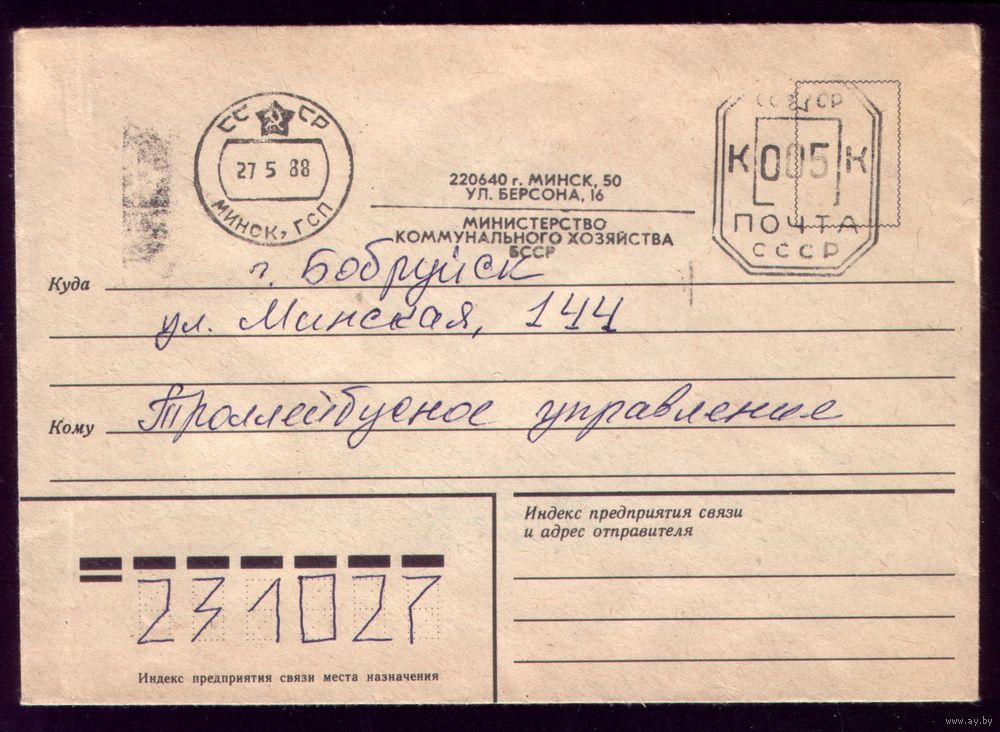 СССР
27 5 88
МИНСК, ГСП
220640 г. МИНСК, 50
УЛ. БЕРСОНА, 16
МИНИСТЕРСТВО
КОММУНАЛЬНОГО ХОЗЯЙСТВА
БССР
СССР
К 005 К
ПОЧТА
СССР
Куда г. Бобруйск
ул. Минская, 144
Кому Троллейбусное управление
Индекс предприятия связи
и адрес отправителя
231027
Индекс предприятия связи места назначения
www.ay.by